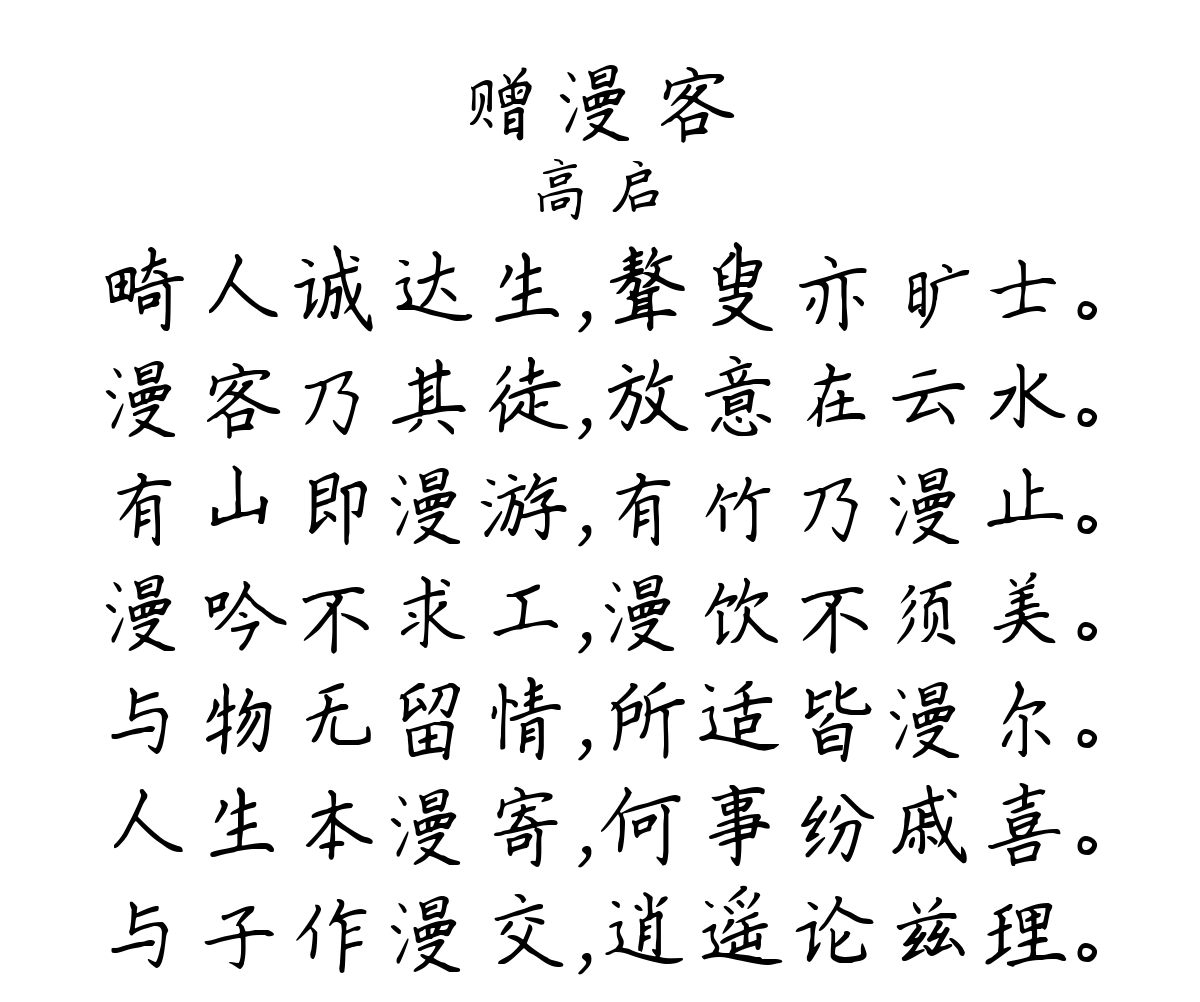 赠漫客
高启
畸人诚达生,聱叟亦旷士。
漫客乃其徒,放意在云水。
有山即漫游,有竹乃漫止。
漫吟不求工,漫饮不须美。
与物无留情,所适皆漫尔。
人生本漫寄,何事纷戚喜。
与子作漫交,逍遥论兹理。